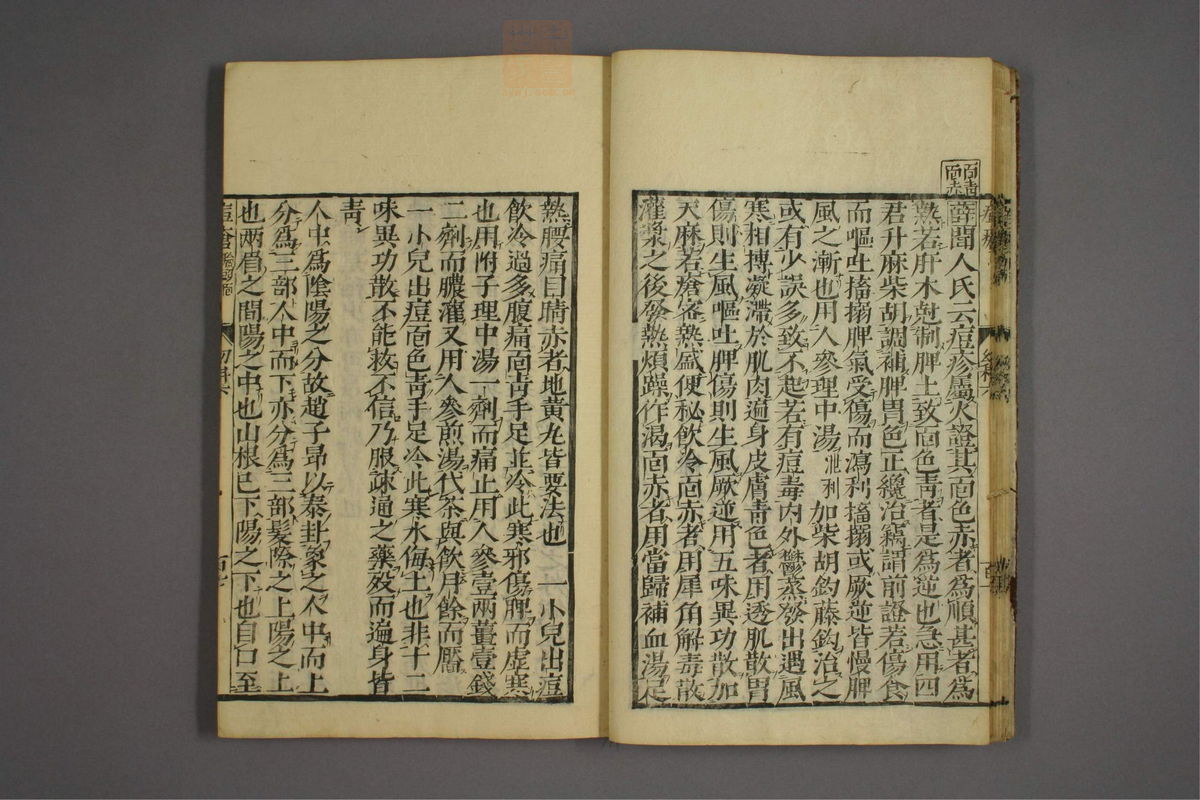 面青
面赤
薛聞人氏云痘疹屬火證其面色赤者爲順甚者爲
熱若肝木尅制脾土致面色青者是爲逆也急用四
君升麻柴胡調補脾胃色正纔治竊謂前證若傷食
而嘔吐搐搦脾氣受傷而瀉利搐搦或厥逆皆慢脾
風之漸也用人參理中湯泄利加柴胡鈎藤鈎治之
或有少誤多致不起若有痘毒內外鬱蒸發出遇風
寒相搏凝滯於肌肉遍身皮膚青色者用透肌散胃
傷則生風嘔吐脾傷則生風厥逆用五味異功散加
天麻若瘡客熱盛便秘飲冷面赤者用犀角解毒散
灌漿之後發熱煩躁作渴面赤者用當歸補血湯足
熱腰痛目睛赤者地黃丸皆要法也 一小兒出痘
飲冷過多腹痛面青手足並冷此寒邪傷脾而虛寒
也用附子理中湯一劑而痛止用人參壹兩薑壹錢
二劑而膿灌又用人參煎湯代茶與飲月餘而靨
一小兒出痘面色青手足冷此寒水侮土也非十二
味異功散不能救不信乃服疎通之藥歿而遍身皆
青
人中爲陰陽之分故趙子昂以泰卦象之人中而上
分爲三部人中而下亦分爲三部髮際之上陽之上
也兩眉之間陽之中也山根已下陽之下也自口至